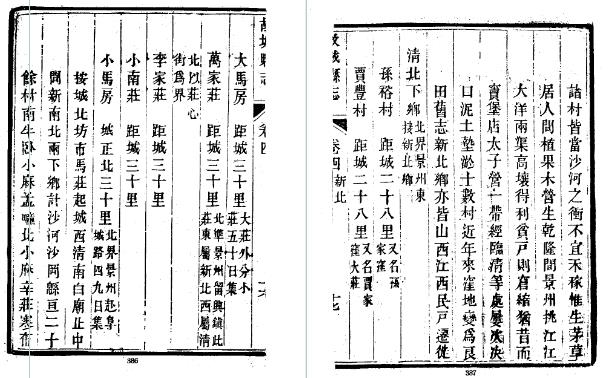 故城縣志 卷四 十六
大馬房 距城三十里 大莊外分小
莊五十日集
萬家莊 距城三十里 北準景州留興鎮此
莊東屬新北西屬清
北以莊心
街爲界
李家莊 距城三十里
小南莊 距城三十里
小馬房 城正北三十里 北界景州赴阜
城路四九日集
按城北坊市馬莊起城西清南白廟止中
間新南北兩下鄉計沙河沙岡縣亘二十
餘村南牛臥小麻蓋北小麻辛莊
386
諸村皆當沙河之衝不宜禾稼惟生茅草
居人間植果木營生乾隆間景州挑江江
大洋兩葉高壤得利貧戶則猶昔而
賣堡店太子營一帶經臨清等處屢次决
口泥土墊淤十數村近年來窪地變爲良
田舊志新北鄉亦皆山西江西民戶遷徙
清北下鄉 北界景州東
接新北鄉
孫裕村 距城二十八里 又名孫
家窪
賈豐村 距城二十八里 又名賈家
窪大莊
故城縣志 卷四 新北 十七
387